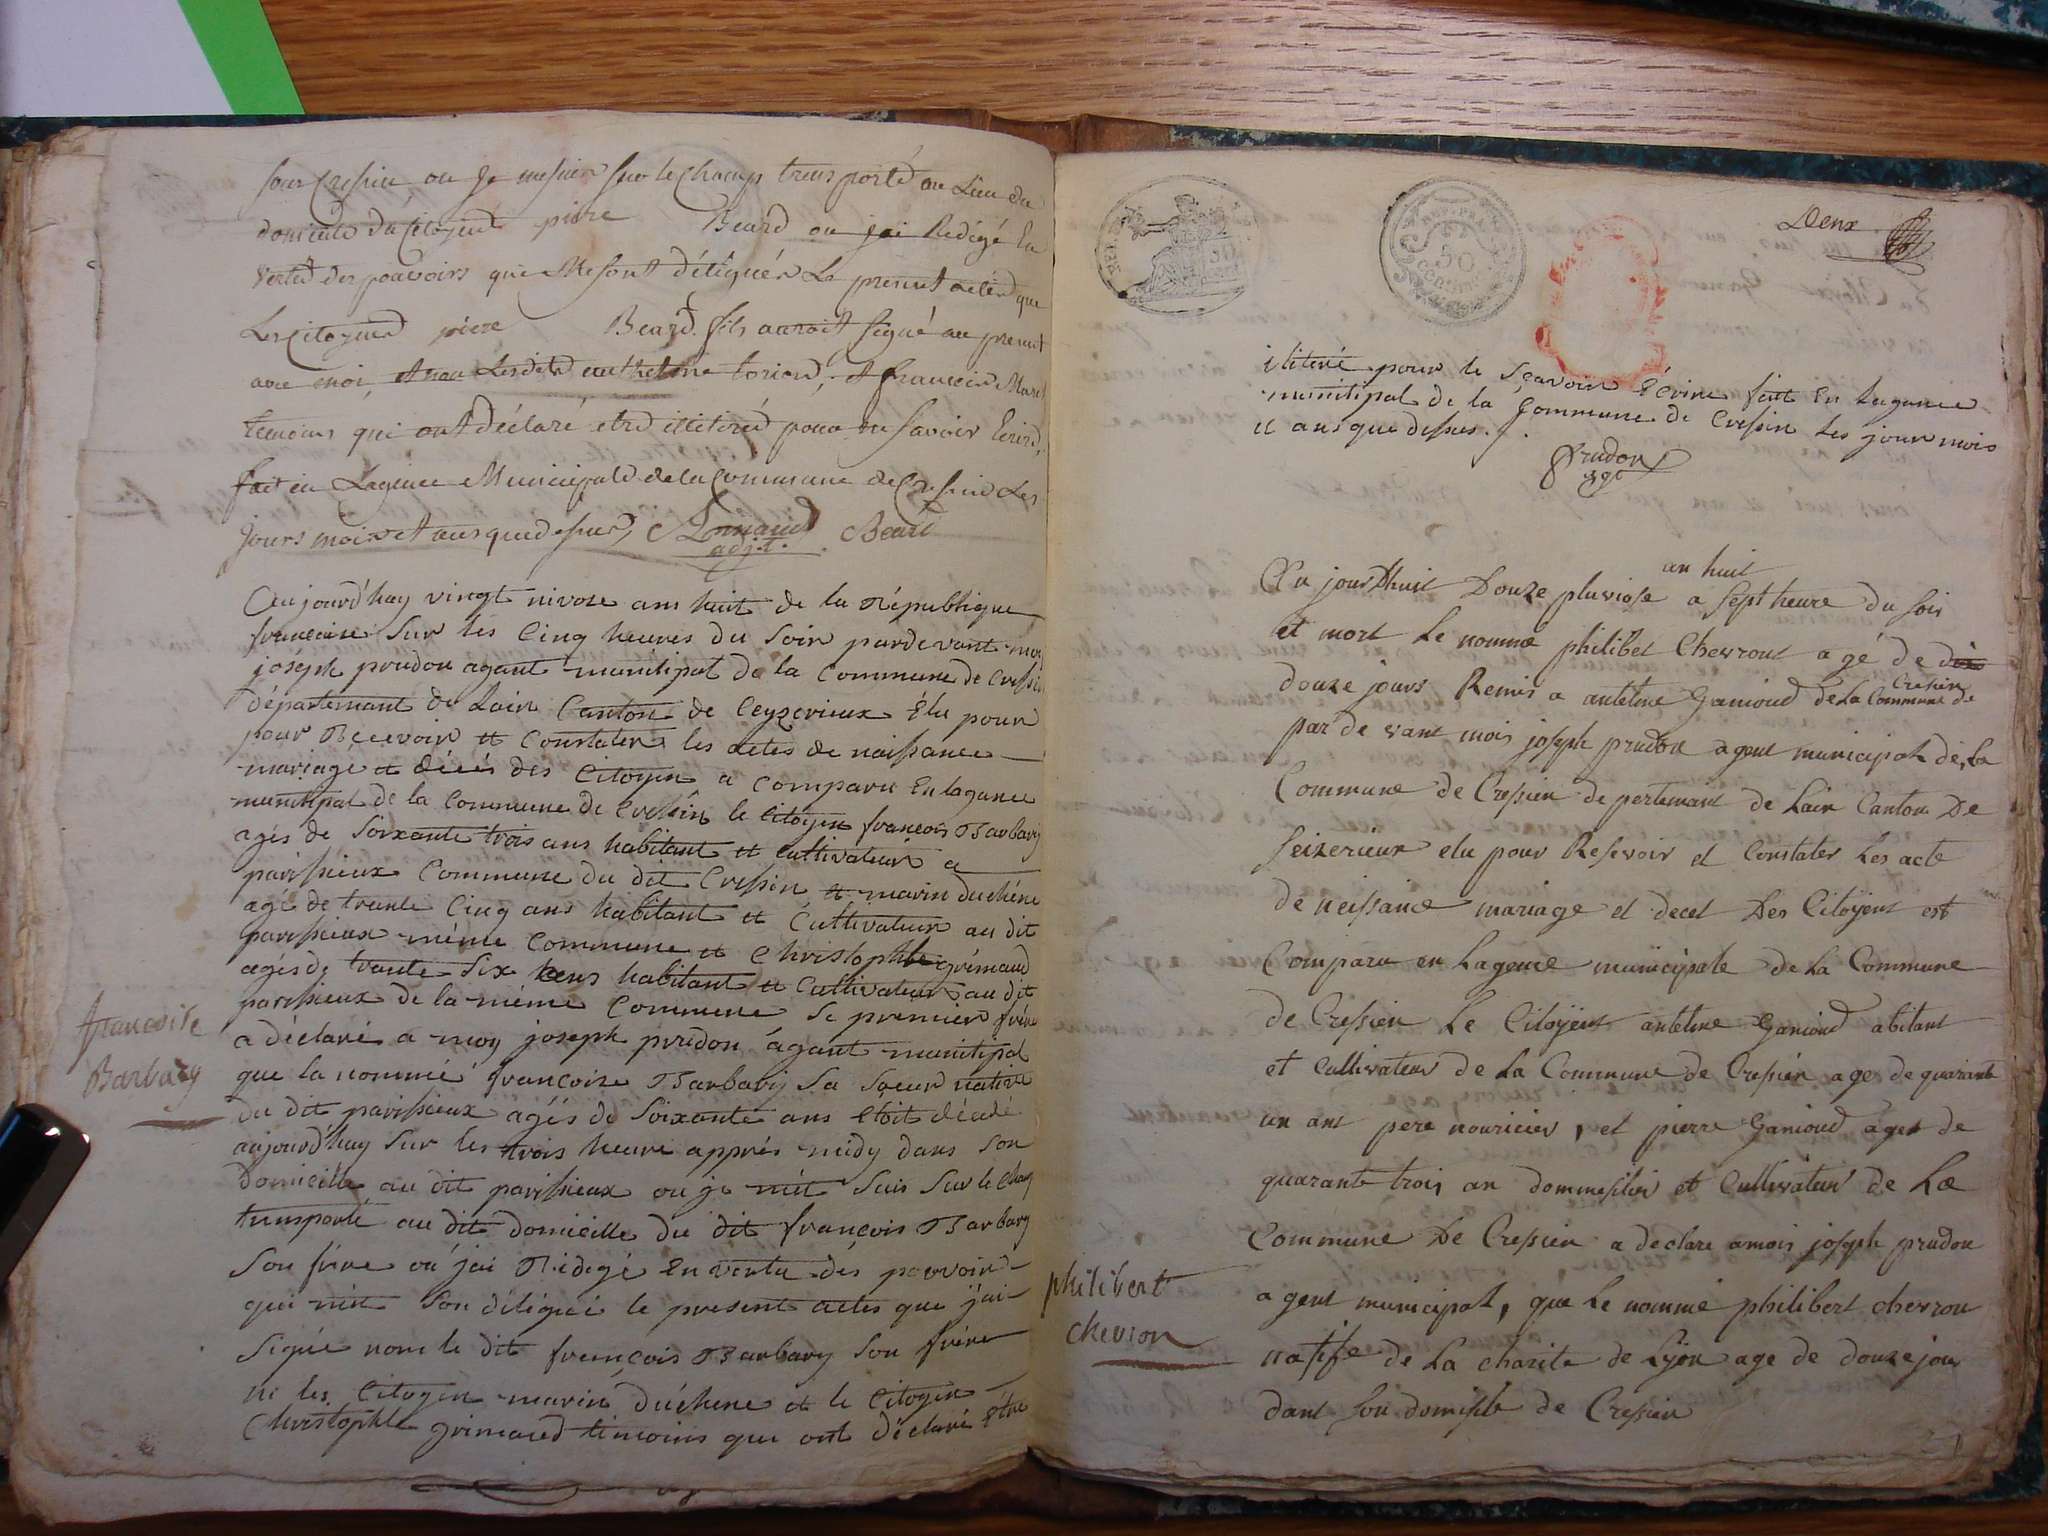 sous Cressin ou je me suis sur le Champs transporté au Lieu du
domicile du Citoyend piere Beard ou jai Redigé En
vertud des pouvoirs qui Me sont délégués Le present acte que
Les Citoyend piere Beard fils auroit signé au present
avec moi, et non Lesdits anthelme torion, et francois
temoins qui ont déclaré etre illiteré pour du savoir Ecrire,
fait en Lagence Municipale de la Commune de Cressin Les
Jours mois et ans que dessus, Bonnard Beard
adjt.
Aujourd'huy vingt nivose ans huit de la République
francaise Sur les Cinq heures du Soir pardevant moy
joséph prudon agant municipal de la Commune de Cressin
département de Lain Canton de Ceyzerieux Élu pour
pour Recevoir et Constater les actes de naissance
mariage et décés des Citoyen a Comparu En lagance
municipal de la Commune de Cressin le Citoyen francois Barbary
agés de Soixante trois ans habitant et cultivateur a
parissieux Commune du dit Cressin, et marin duchéne
agé de trante Cinq ans habitant et Cultivateur au dit
parissieux même Commune et Christophle grimaud
agés de trante Six ans habitant et Cultivateur au dit
parissieux de la méme Commune Se premier frére
a déclaré a moy joseph prudon ágant municipal
que la nommé francoise Barbary Sa Sœur native
du dit parissieux agés de Soixante ans Etoit décédé
aujourd'huy Sur les trois heure apprés midy dans Son
domicille au dit parissieux ou je mét Suis Sur le Champ
transporté au dit domicille du dit francois Barbary
Son frére ou j'ai Rédigé En vertu dés pouvoir
qui mét Son délégué le present actes que j'ai
Signé nom le dit francois Barbary Son frére
ni les Citoyen marin duchene et le Citoyen
Christophle grimaud témoins qui ont déclaré étre
francoise
Barbary
Deux
REP. FRA.
50
centime
iliteré pour le Sçavoir Écrire fait En Lagance
municipal de la Commune de Cressin Les jour mois
et ans que dessus.
Prudon
agt
an huit
Au jourdhuit Douze pluviose a sept heure du soir
et mort Le nomme philibet Chevront agé de dix
Cressin
douze jours Remis a anteline Ganioud de La Commune de
par de vant mois joseph prudon agent municipal de La
Commune de Cressien depertemant de Lain Canton De
Seizerieux elu pour Resevoir et Constater Les acte
De neissance mariage et decet Des Citoÿent est
Comparu en Lagence municipale de La Commune
de Cressien Le Citoÿent anteline Ganioud abitant
et Cultivateur de La Commune de Cressien age de quarante
un ant pere nouricier, et pierre Ganioud ager de
quarante trois an dommesilier et Cultivateur de La
Commune De Cressien a declare amois joseph prudon
agent municipal, que Le nommé philibert chevron
natife de La charite de Lÿon age de douze jour
dant son domisile de Cressien
philibert
chevron